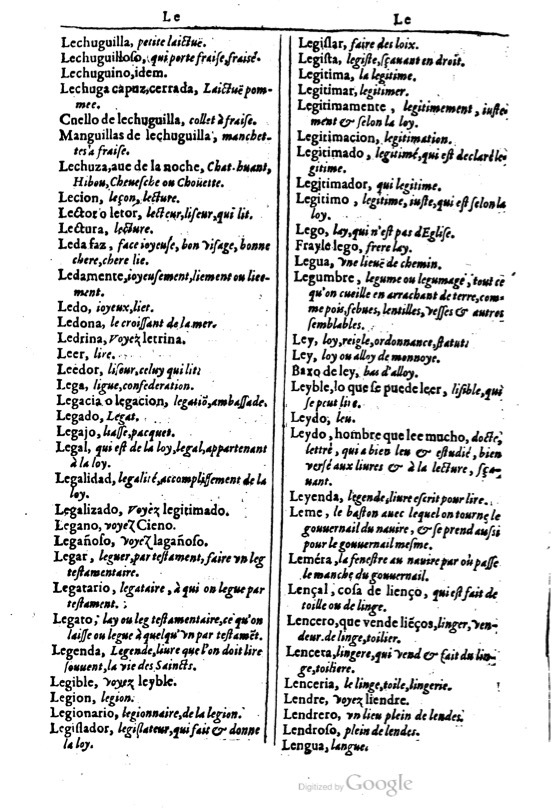 Le
Lechuguilla, petite laictuë.
Lechuguilloso, qui porte fraise, fraisé.
Lechuguino, idem.
Lechuga capuz, cerrada, Laictuë pom-
mee.
Cuello de lechuguilla, collet à fraise.
Manguillas de lechuguilla, manchet-
tes à fraise.
Lechuza, aue de la noche, Chat-huant,
Hibou, Cheuesche ou Choüette.
Lecion, leçon, lecture.
Lector o letor, lecteur, liseur, qui lit.
Lectura, lecture.
Leda faz, face ioyeuse, bon visage, bonne
chere, chere lie.
Ledamente, ioyeusement, liement ou liee-
ment.
Ledo, ioyeux, liet.
Ledona, le croissant de la mer.
Ledrina, voyez letrina.
Leer, lire.
Leedor, liseur, celuy qui lit.
Lega, ligue, confederation.
Legacia o legacion, legatiõ, ambassade.
Legado, Legat.
Legajo, liasse, pacquet.
Legal, qui est de la loy, legal, appartenant
à la loy.
Legalidad, legalité, accomplissement de la
loy.
Legalizado, voyez legitimado.
Legano, voyez Cieno.
Legañoso, voyez lagañoso.
Legar, leguer, par testament, faire vn leg
testamentaire.
Legatario, legataire, à qui on legue par
testament.
Legato, lay ou leg testamentaire, ce qu'on
laisse ou legue à quelqu'vn par testamẽt.
Legenda, Legende, liure que l'on doit lire
souuent, la vie des Saincts.
Legible, voyez leyble.
Legion, legion.
Legionario, legionnaire, de la legion.
Legislador, legislateur, qui fait & donne
la loy.
Le
Legislar, faire des loix.
Legista, legiste, sçauant en droit.
Legitima, la legitime.
Legitimar, legitimer.
Legitimamente, legitimement, iuste-
ment & selon la loy.
Legitimacion, legitimation.
Legitimado, legitimé, qui est declaré le-
gitime.
Legitimador, qui legitime.
Legitimo, legitime, iuste, qui est selon la
loy.
Lego, lay, qui n'est pas d'Eglise.
Frayle lego, frere lay.
Legua, vne lieuë de chemin.
Legumbre, legume ou legumage, tout ce
qu'on cueille en arrachant de terre, com-
me pois, febues, lentilles, vesses & autres
semblables.
Ley, loy, reigle, ordonnance, statut.
Ley, loy ou alloy de monnoye.
Baxo de ley, bas d'alloy.
Leyble, lo que se puede leer, lisible, qui
se peut lire.
Leydo, leu.
Leydo, hombre que lee mucho, docte,
lettré, qui a bien leu & estudié, bien
versé aux liures & à la lecture, sça-
uant.
Leyenda, legende, liure escrit pour lire.
Leme, le baston auec lequel on tourne le
gouuernail du nauire, & se prend aussi
pour le gouuernail mesme.
Leméra, la fenestre au nauire par où passe
le manche du gouuernail.
Lençal, cosa de lienço, qui est fait de
toille ou de linge.
Lencero, que vende liéços, linger, ven-
deur de linge, toilier.
Lencera, lingere, qui vend & fait du lin-
ge, toiliere.
Lenceria, le linge, toile, lingerie.
Lendre, voyez liendre.
Lendrero, vn lieu plein de lendes.
Lendroso, plein de lendes.
Lengua, langue.
Digitized by Google